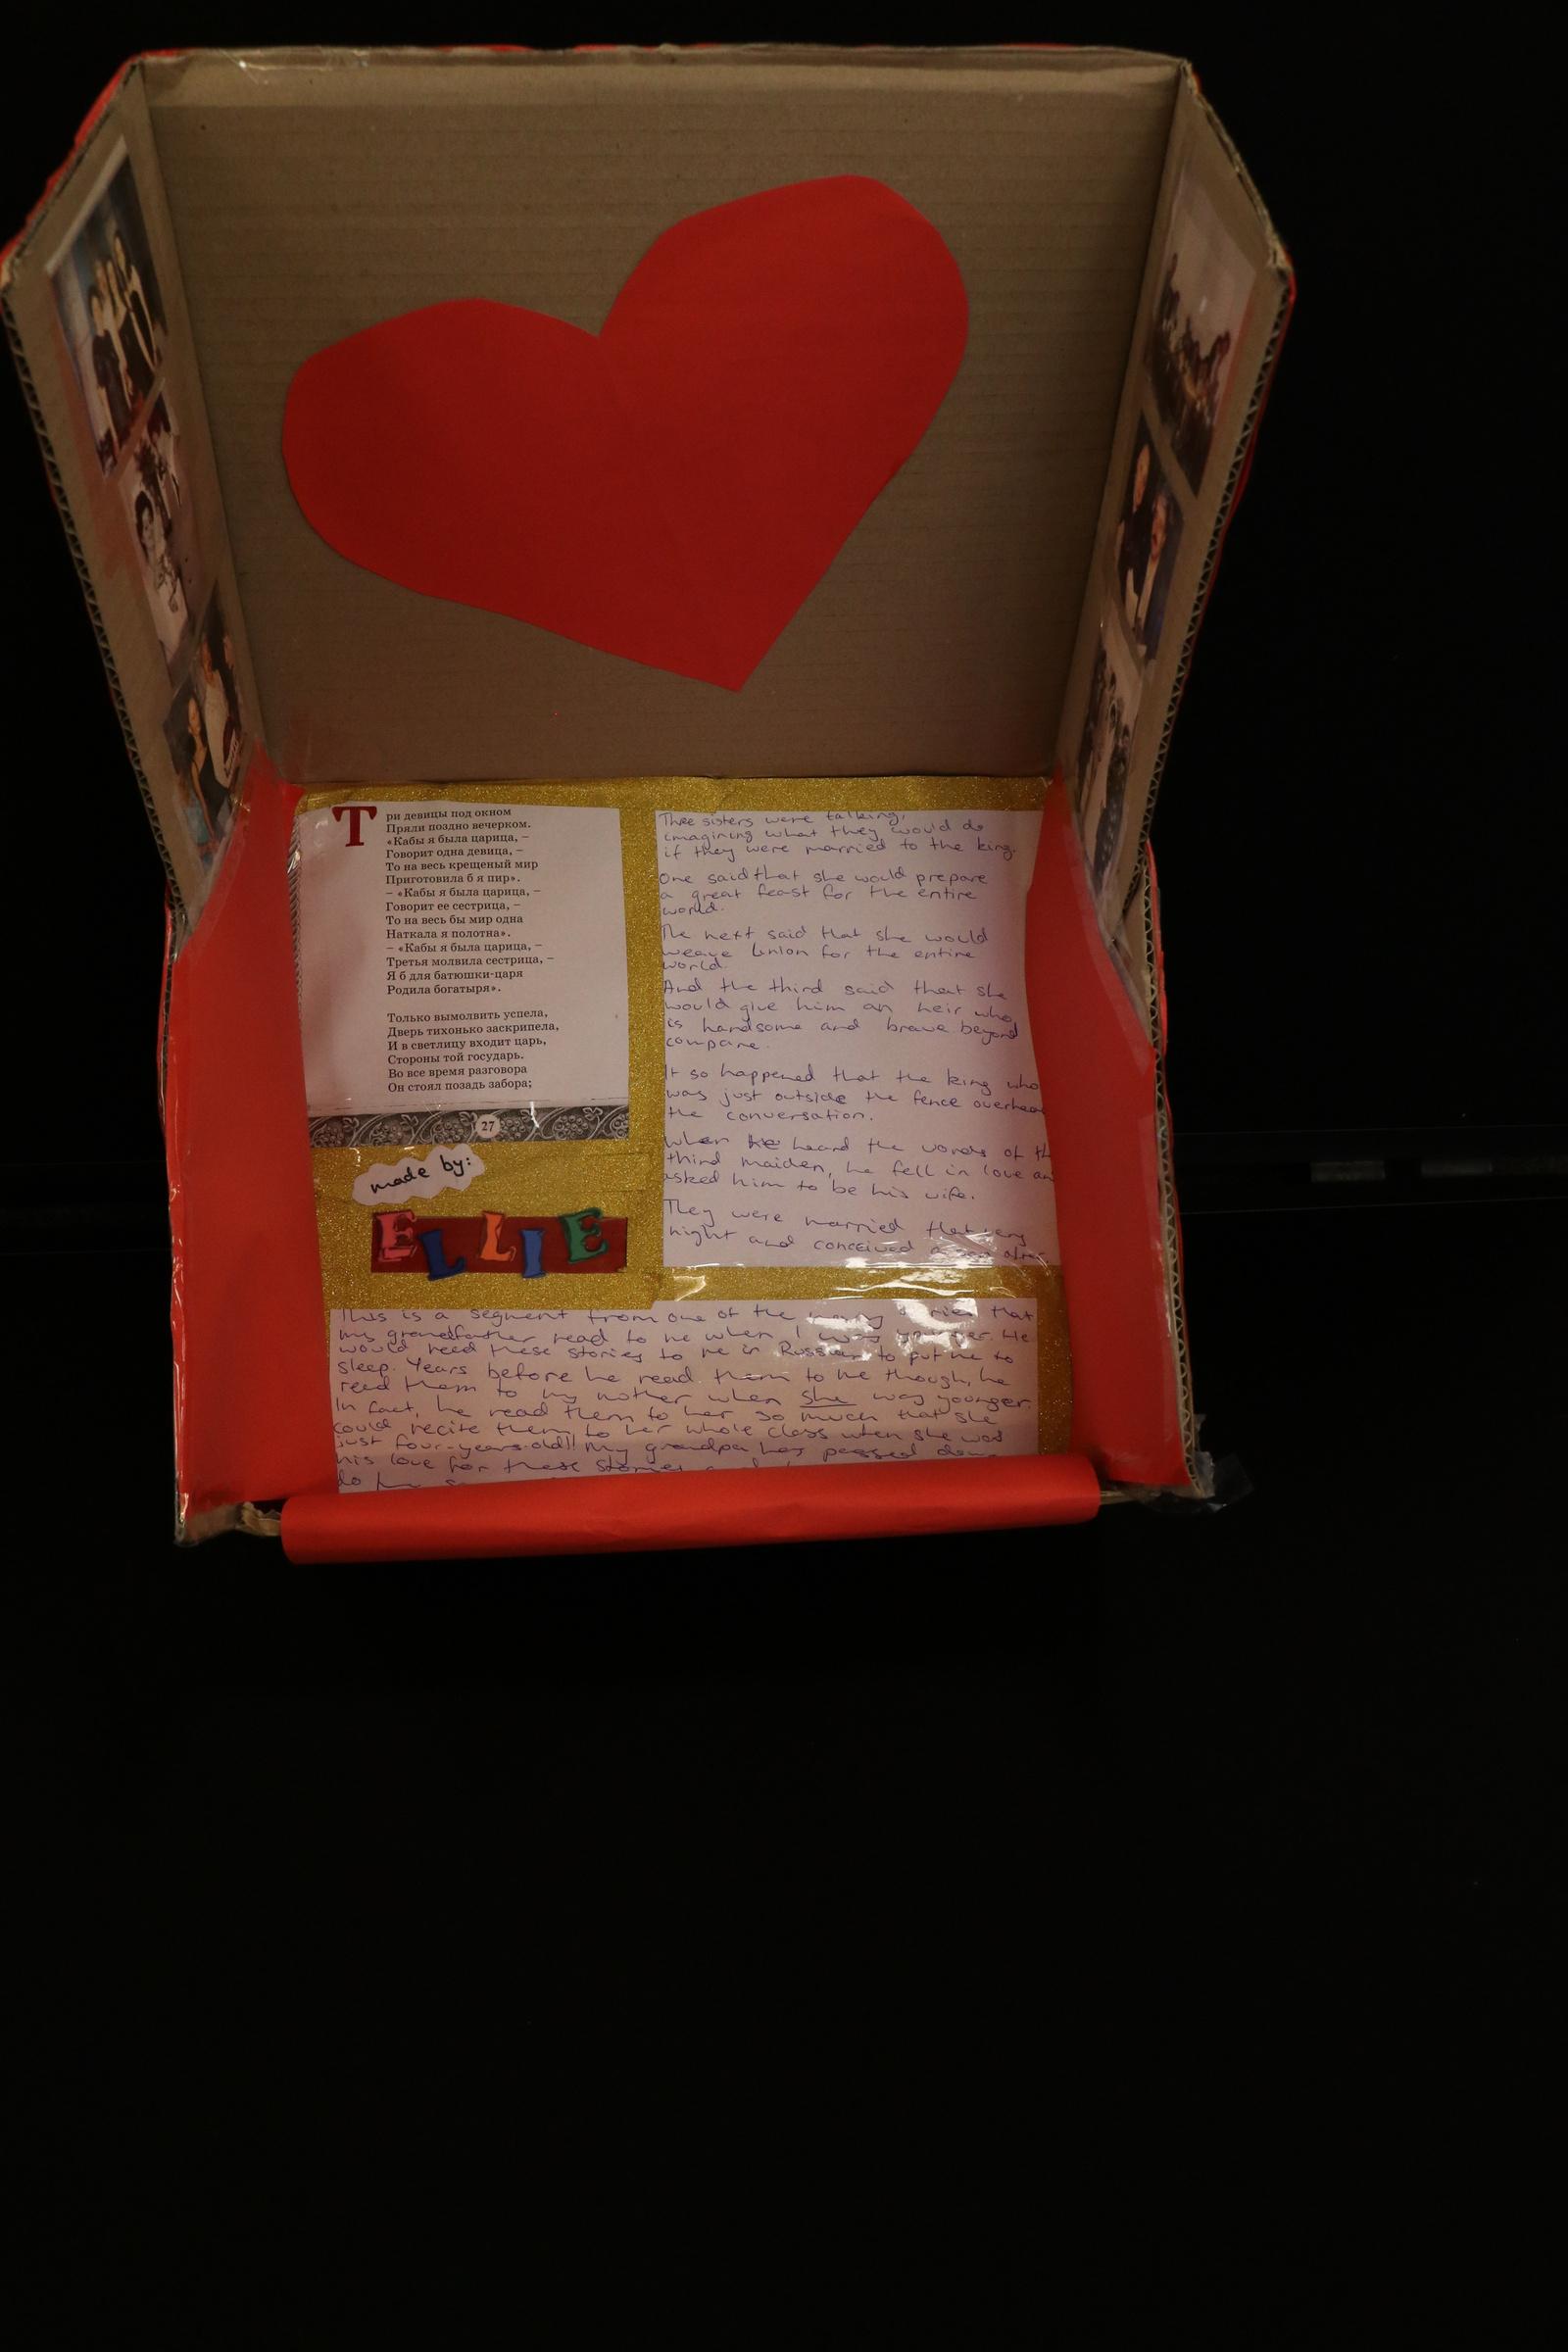 Три девицы под окном
Пряли поздно вечерком.
«Кабы я была царица, –
Говорит одна девица, –
То на весь крещеный мир
Приготовила б я пир».
– «Кабы я была царица, –
Говорит ее сестрица, –
То на весь бы мир одна
Наткала я полотна».
– «Кабы я была царица, –
Третья молвила сестрица, –
Я б для батюшки-царя
Родила богатыря».
Только вымолвить успела,
Дверь тихонько заскрипела,
И в светлицу входит царь,
Стороны той государь.
Во все время разговора
Он стоял позадь забора;
27
Three sisters were talking,
imagining what they would do
if they were married to the king.
One said that she would prepare
a great feast for the entire
world.
The next said that she would
weave linion for the entire
world.
And the third said that she
would give him an heir who
is handsome and brave beyond
compare.
It so happened that the king who
was just outside the fence overhea
the conversation.
When he heard the words of th
third maiden, he fell in love an
asked him to be his wife.
They were married that very
night and conceived a
made by:
ELLIE
This is a segment from one of the many stories that
my grandfather read to me when I was younger. He
would read these stories to me in Russian to put me to
sleep. Years before he read them to me though, he
read them to my mother when she was younger.
In fact, he read them to her so much that she
could recite them to her whole class when she was
just four-years-old!! My grandpa has passed down
his love for these stories